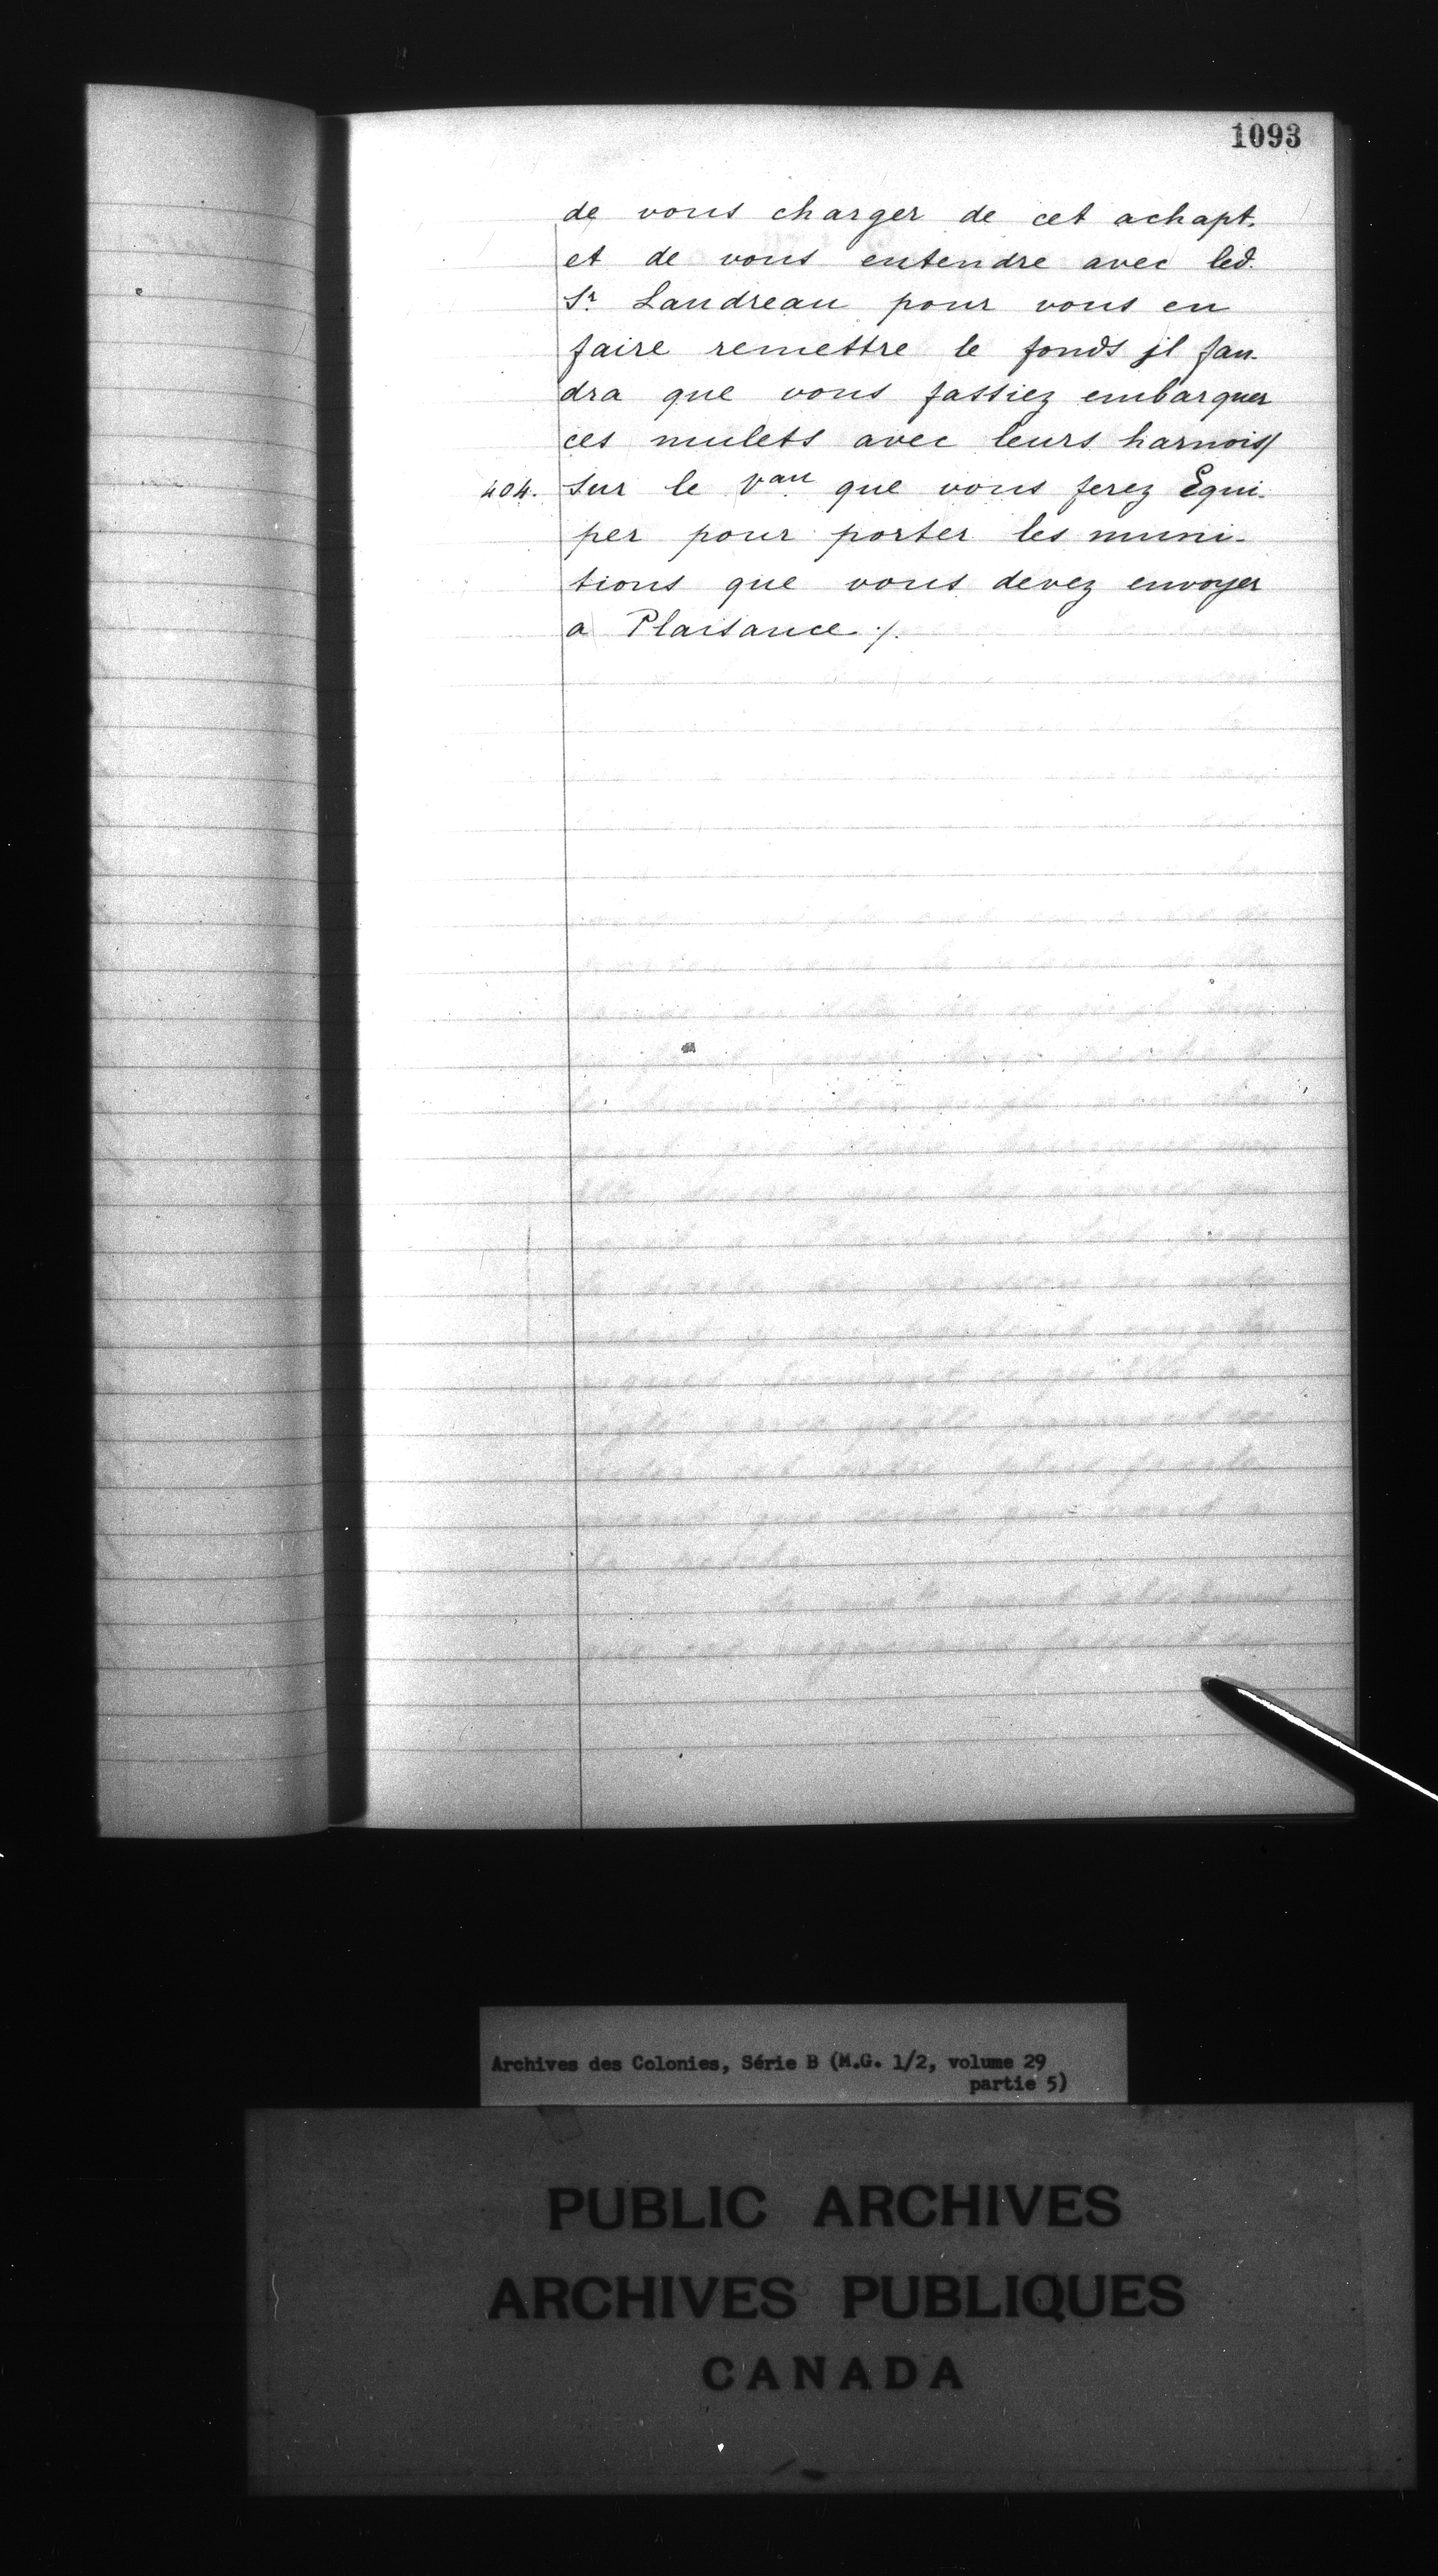 1093
de vous charger de cet achapt.
et de vous entendre avec led.
Sr. Landreau pour vous en
faire remettre le fonds jl fau-
dra que vous fassiez embarquer
ces mulets avec leurs harnois/
404. sur le vau que vous ferez Equi-
per pour porter les muni-
tions que vous devez envoyer
a Plaisance ./.
Archives des Colonies, Série B (M.G. 1/2, volume 29
partie 5)
PUBLIC ARCHIVES
ARCHIVES PUBLIQUES
CANADA